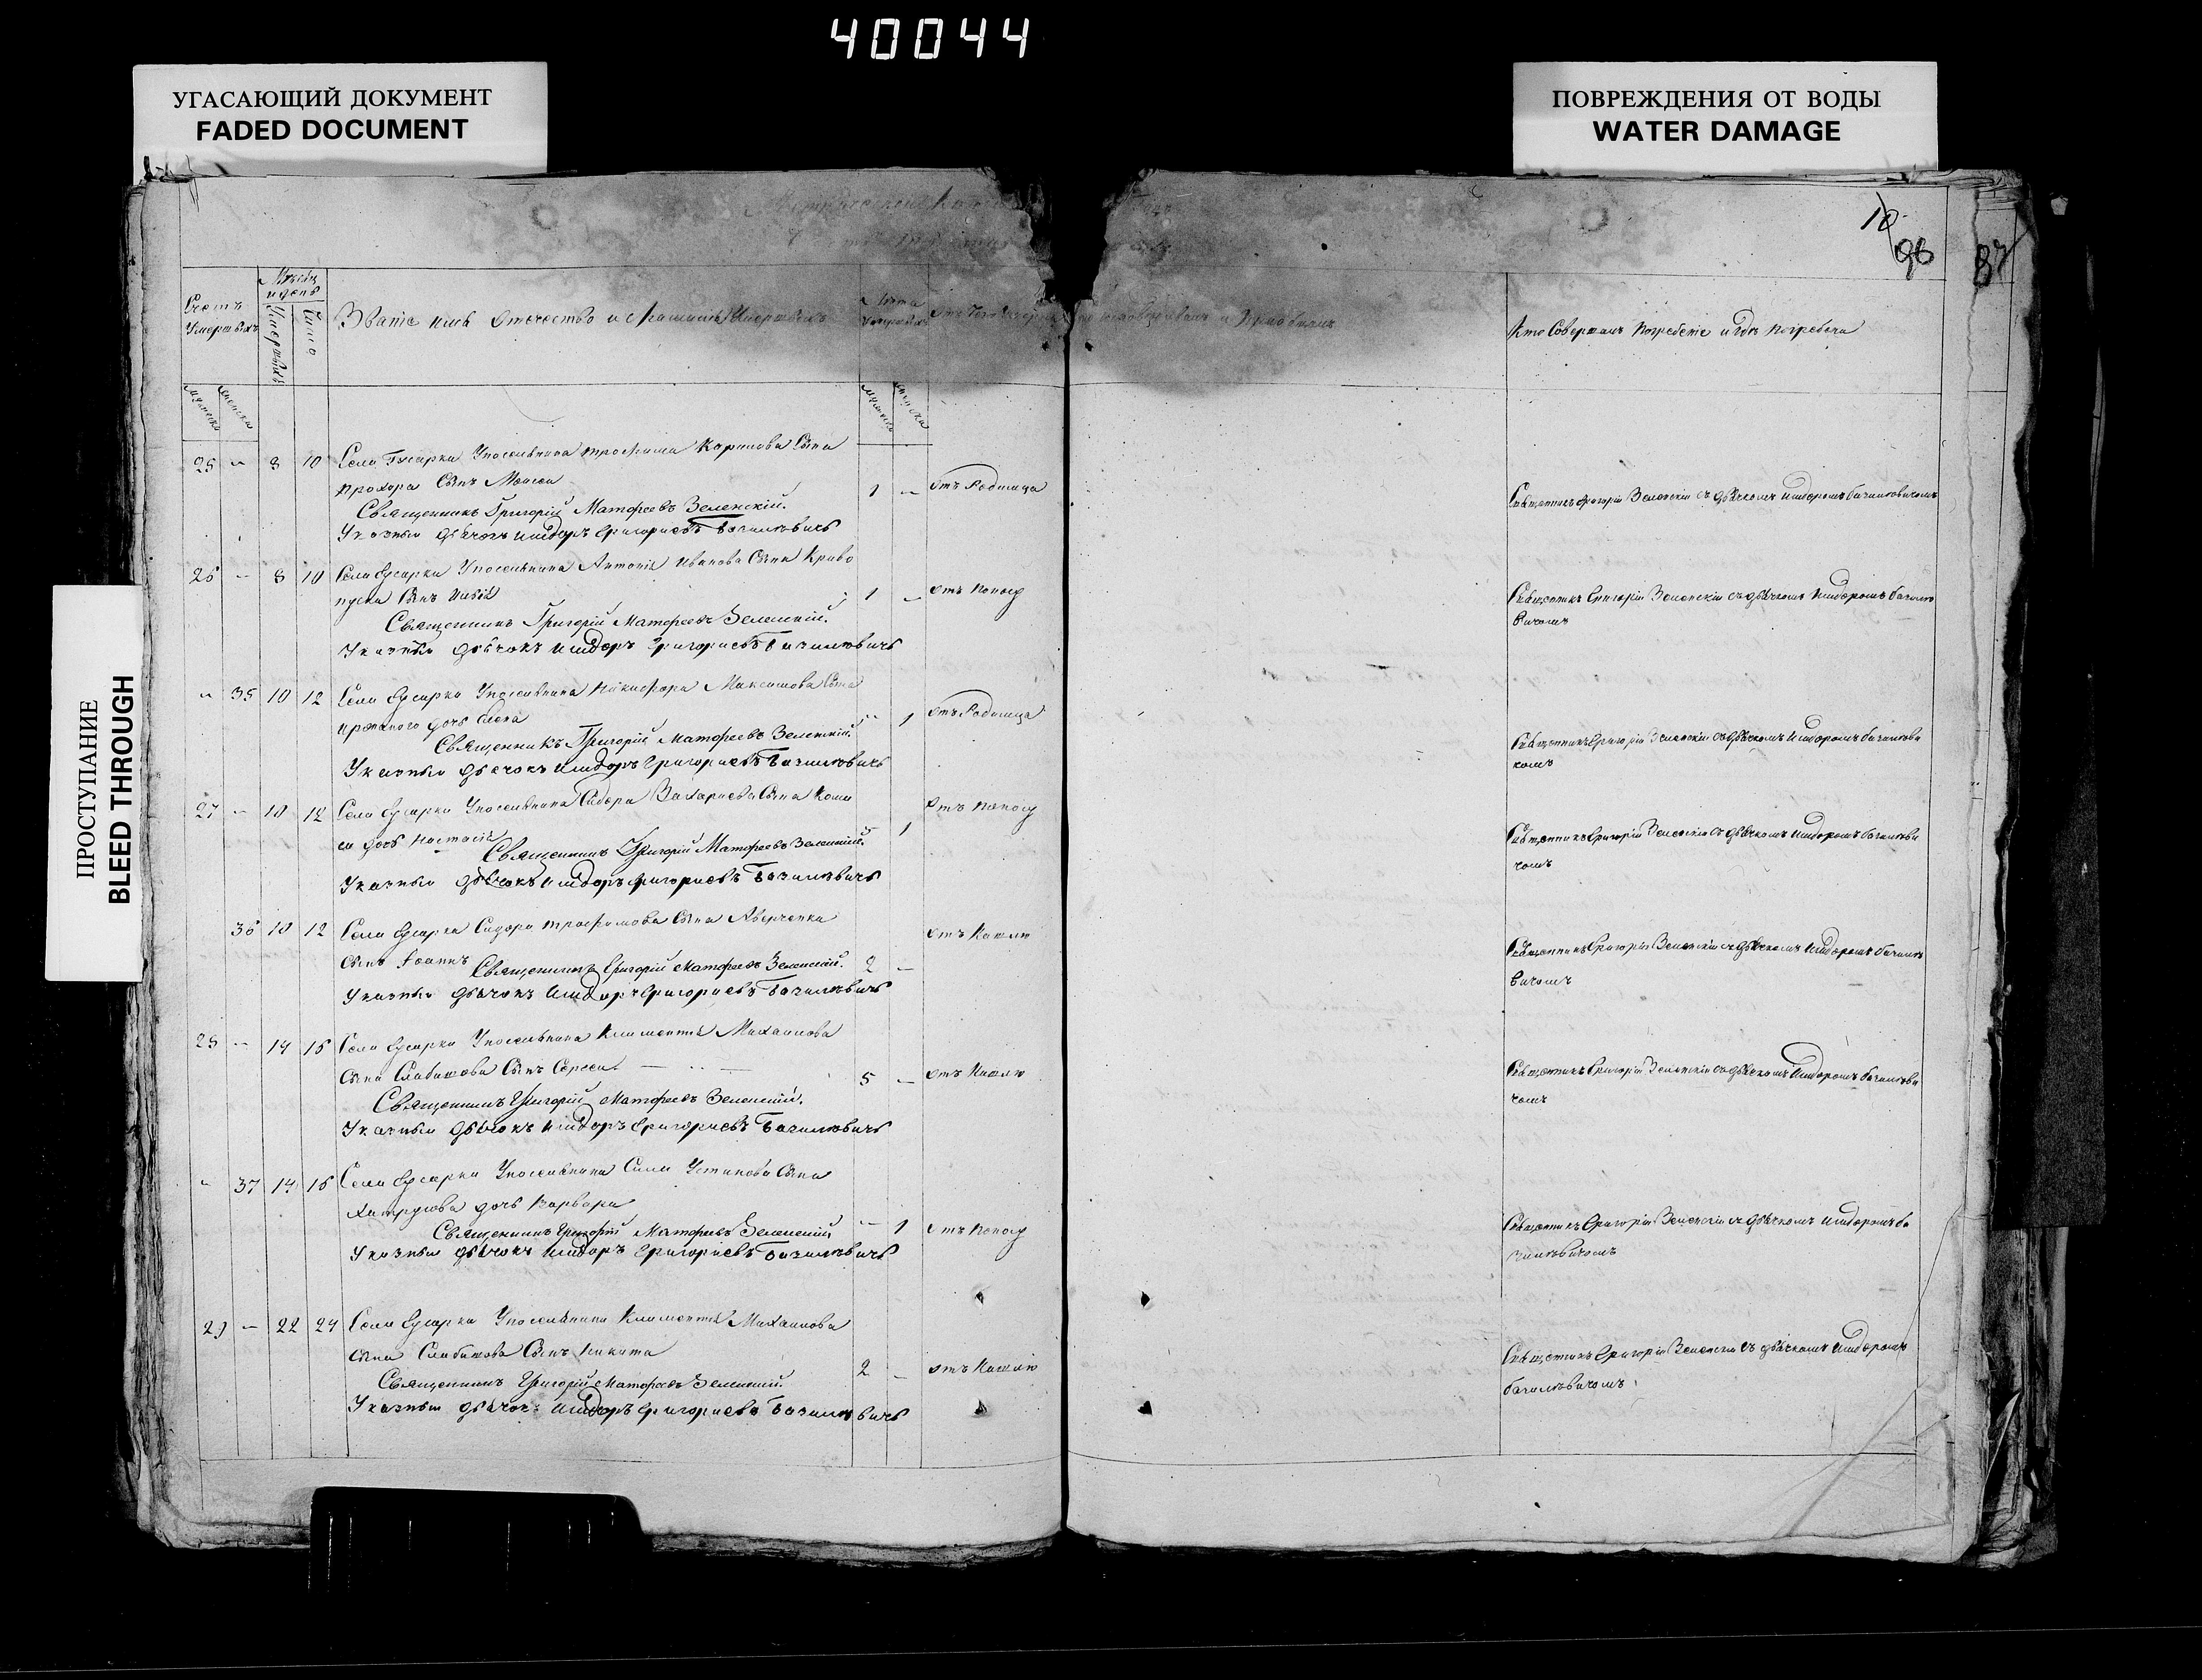 40044
УГАСАЮЩИЙ ДОКУМЕНТ
FADED DOCUMENT
ПОВРЕЖДЕНИЯ ОТ ВОДЫ
WATER DAMAGE
ПРОСТУПАНИЕ
BLEED THROUGH
10
98
87
Счетъ Умершыхъ
Мѣсяц и день
Умершыхъ
Число
Званіе имя Отечество и Фамилія Умершыхъ
Лѣта Умершыхъ
Отъ чего
Кто Совершалъ Погребеніе и гдѣ погребены
25 - 8 10 Села Гусарки Упоселянина Трофима Карпова Сына
Прохора Сынъ Моисей 1 - Отъ Родимца
Священникъ Григорій Матфеевъ Зеленскій.
Указный дьячокъ Исидоръ Григориевъ Базилювичъ
Священникъ Григорій Зеленскій съ дьячкомъ Исидоромъ Базилювичомъ
26 - 8 10 Села Гусарки Упоселянина Антонія Иванова Сына Криво
пуска Сынъ 1 - отъ Поносу
Священникъ Григорій Матфеевъ Зеленскій.
Указный дьячокъ Исидоръ Григориевъ Базилювичъ
Священникъ Григорій Зеленскій съ дьячкомъ Исидоромъ Базилю
вичомъ
- 35 10 12 Села Гусарки Упоселянина Никифора Максимова Сына
дочь Елена - 1 отъ Родимца
Священникъ Григорій Матфеевъ Зеленскій.
Указный дьячокъ Исидоръ Григориевъ Базилювичъ
Священникъ Григорій Зеленскій съ дьячкомъ Исидоромъ Базилюви
чомъ
27 - 10 12 Села Гусарки Упоселянина Сидора Захариева Сына
дочь Настасія - 1 Отъ Поносу
Священникъ Григорій Матфеевъ Зеленскій.
Указный дьячокъ Исидоръ Григориевъ Базилювичъ
Священникъ Григорій Зеленскій съ дьячкомъ Исидоромъ Базилюви
чомъ
36 10 12 Села Гусарка Сидора Трофимова Сына Аверченка
Сынъ Іоаннъ 2 - отъ Кашлю
Священникъ Григорій Матфеевъ Зеленскій.
Указный дьячокъ Исидоръ Григориевъ Базилювичъ
Священникъ Григорій Зеленскій съ дьячкомъ Исидоромъ Базилю
вичомъ
28 - 14 16 Села Гусарки Упоселянина Климентія Михаилова
Сына Слабишова Сынъ Сергей 5 - отъ Кашлю
Священникъ Григорій Матфеевъ Зеленскій.
Указный дьячокъ Исидоръ Григориевъ Базилювичъ
Священникъ Григорій Зеленскій съ дьячкомъ Исидоромъ Базилюви
чомъ
- 37 14 16 Села Гусарки Упоселянина Силы Устинова Сына
дочь Варвара - 1 отъ Поносу
Священникъ Григорій Матфеевъ Зеленскій
Указный дьячокъ Исидоръ Григориевъ Базилювичъ
Священникъ Григорій Зеленскій съ дьячкомъ Исидоромъ Ба
зилювичомъ
29 - 22 24 Села Гусарки Упоселянина Климентія Михаилова
сына Слабишова Сынъ Никита 2 - отъ Кашлю
Священникъ Григорій Матфеевъ Зеленский.
Указный дьячокъ Исидоръ Григориевъ Базилювичъ
Священникъ Григорій Зеленскій съ дьячкомъ Исидоромъ
Базилювичомъ